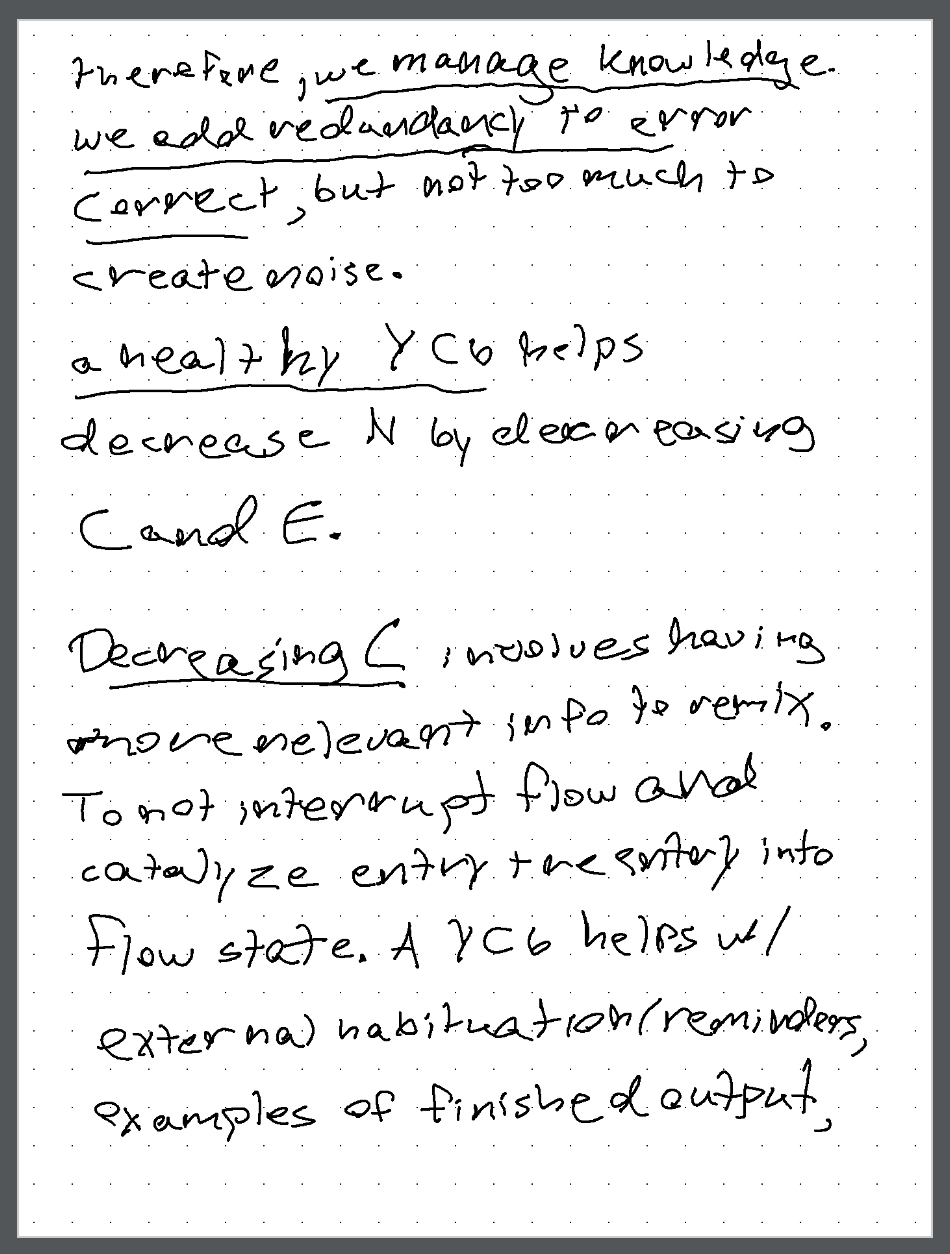 therefore, we manage knowledge.
we add redundancy to error
correct, but not too much to
create noise.
a healthy YCb helps
decrease N by decreasing
C and E.
Decreasing C involves having
more relevant info to remix.
To not interrupt flow and
catalyze entry + reentry into
flow state. A YCb helps w/
external habituation (reminders,
examples of finished output,